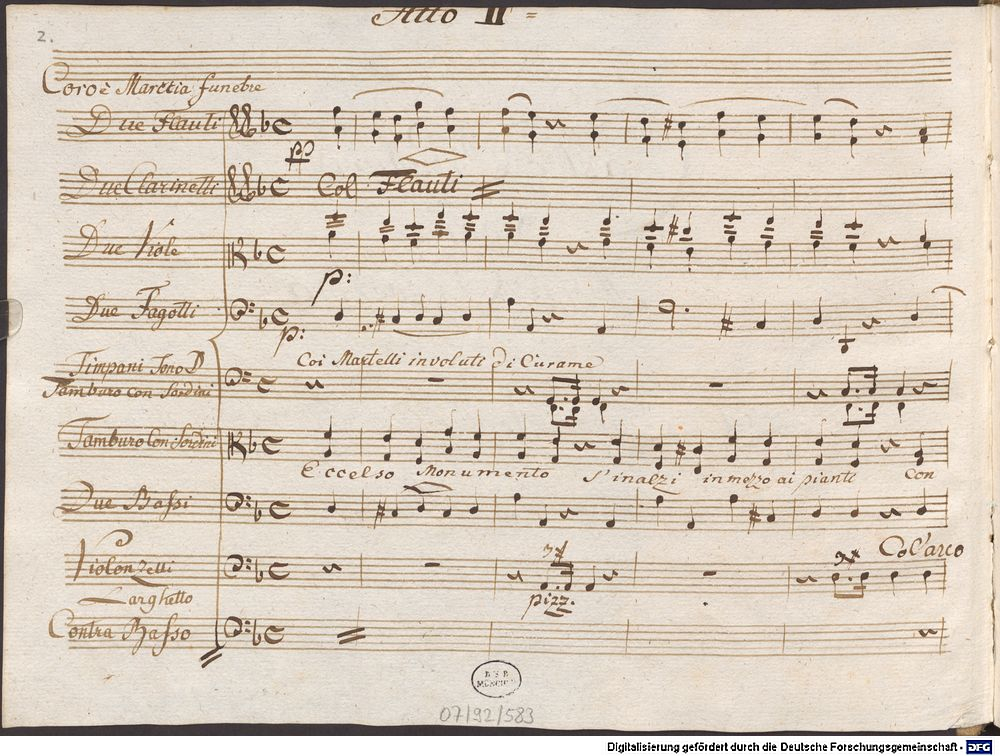 Atto II =
2.
Coro è Marctia funebre
Due Flauti
pp
Due Clarinetti
Col Flauti
Due Viole
p:
Due Fagotti
p:
Coi Martelli involuti di Curame
Timpani Tono D
Tamburo con Sordini
Tamburo Con Sordini
Eccelso Monumento S'inalzi in mezzo ai pianti con
Due Bassi
Col'arco
Violonzelli
pizz.
Larghetto
Contra Basso
B S B
MÜNCHEN
07/92/583
Digitalisierung gefördert durch die Deutsche Forschungsgemeinschaft - DFG